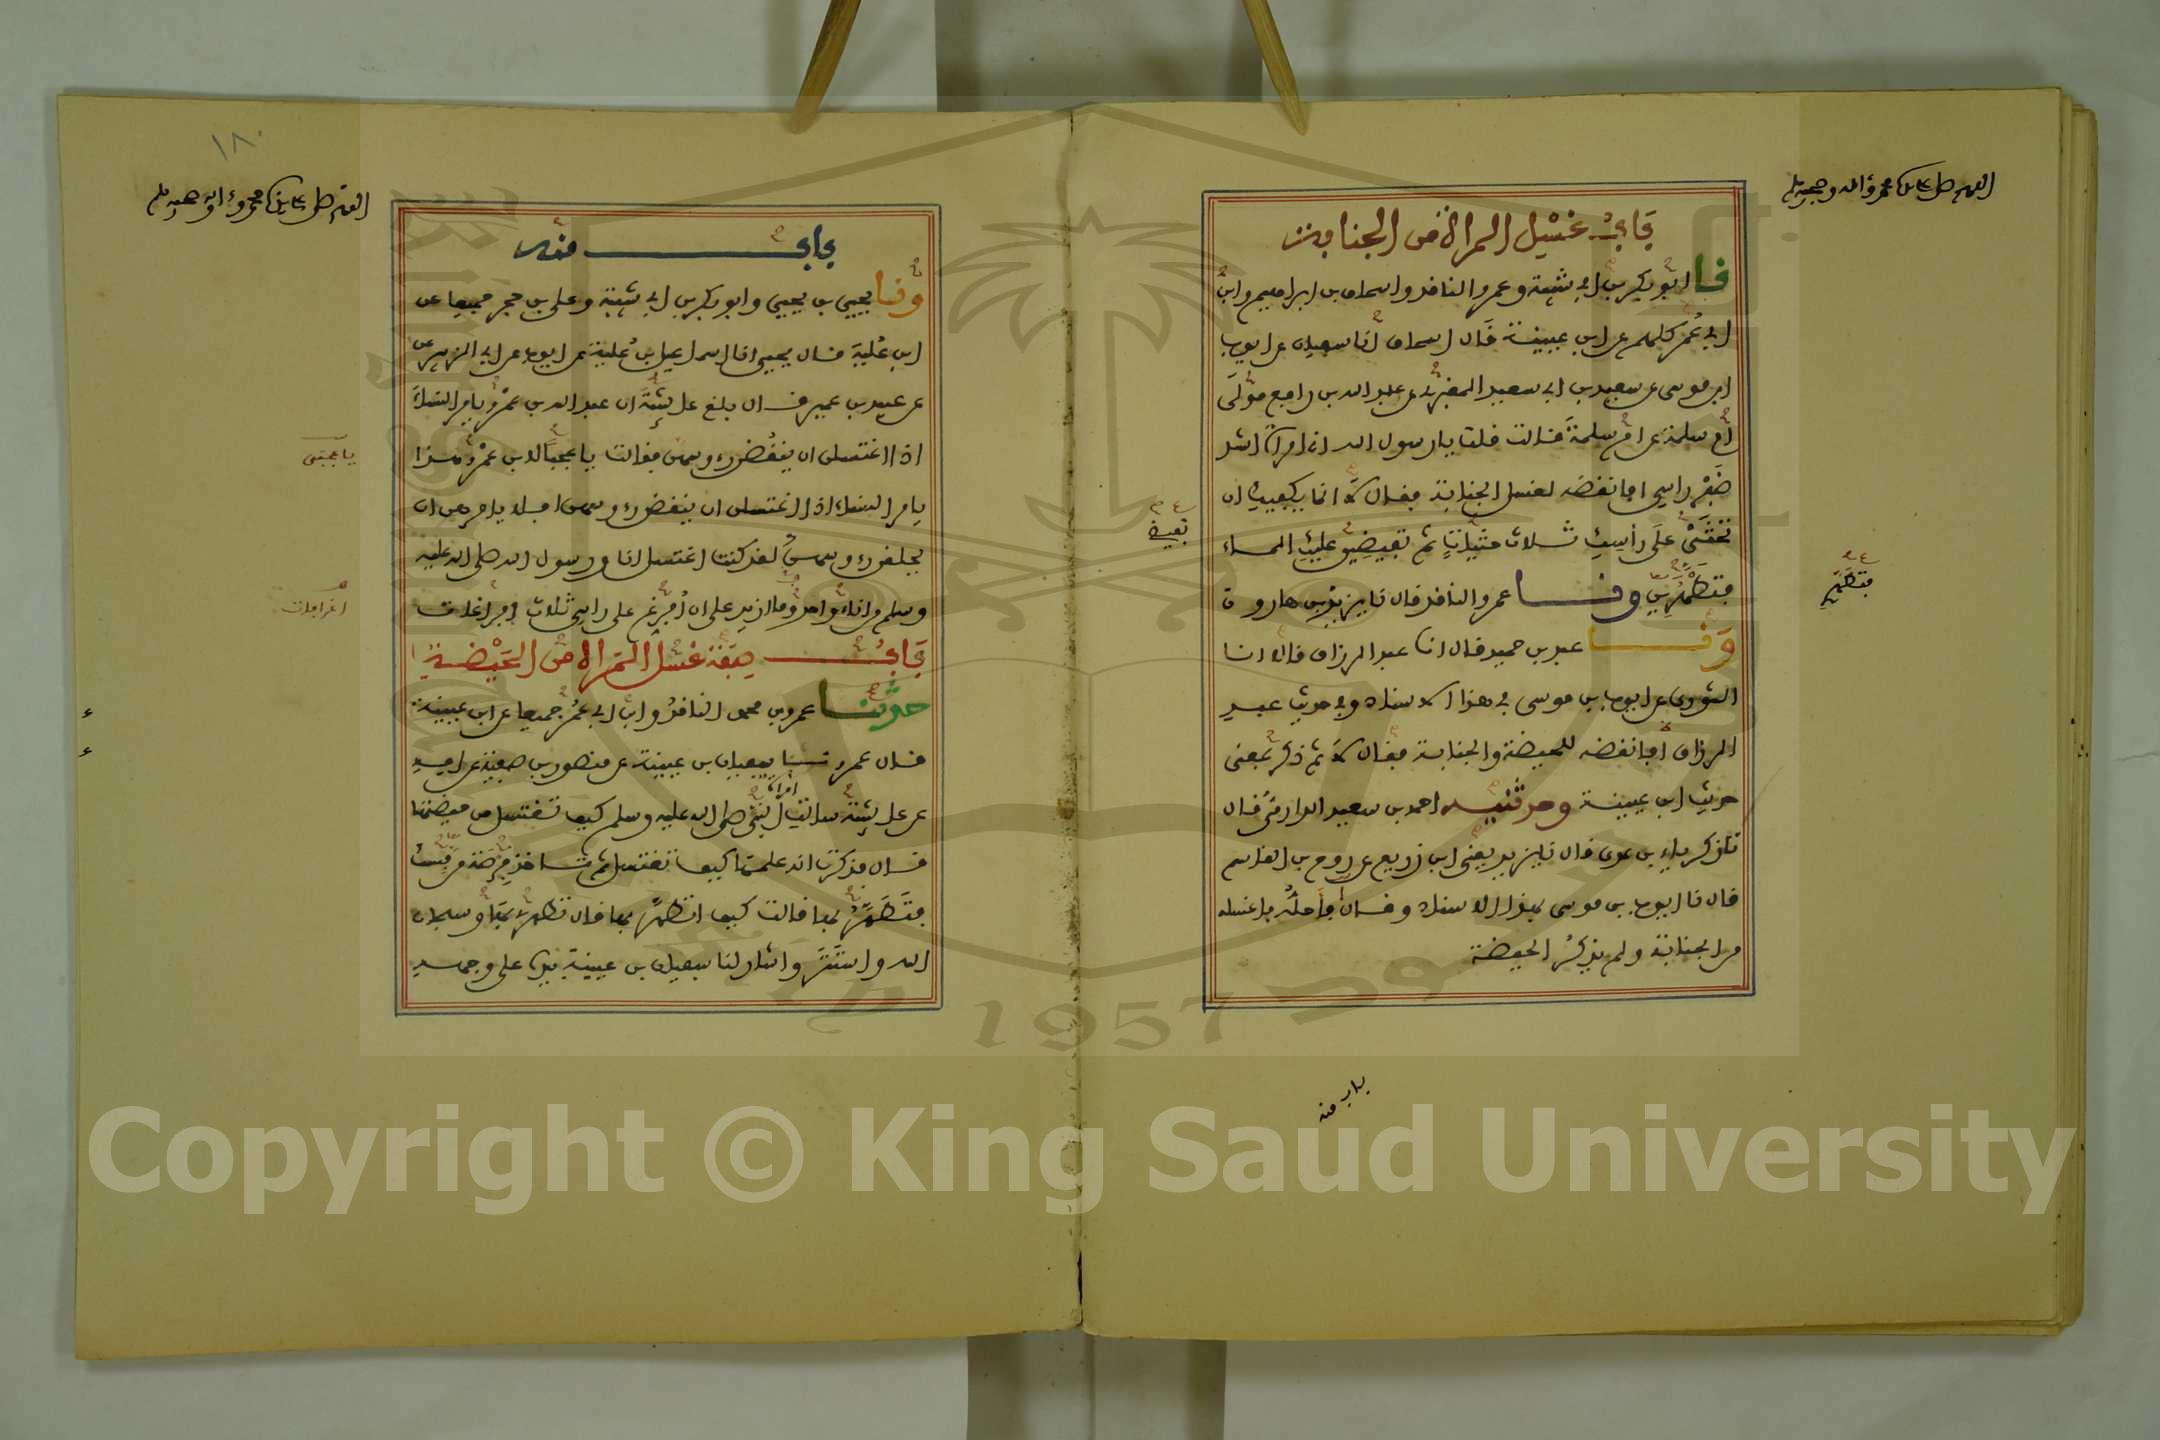 اللهم صل على سيدنا محمد وءاله وصحبه وسلم
باب غسل المراة من الجنابة
نا ابو بكر بن ابي شيبة وعمرو الناقد واسحاق بن ابراهيم وابن
ابي عمر كلهم عن ابن عيينة قال اسحاق انا سفيان عن ايوب
ابن موسى عن سعيد بن ابي سعيد المقبري عن عبد الله بن رافع مولى
ام سلمة عن ام سلمة قالت قلت يا رسول الله اني امراة اشد
ضفر راسي افانقضه لغسل الجنابة فقال لا انما يكفيك ان
تحثي على رأسك ثلاث حثيات ثم تفيضي عليك الماء
فتطهرين ونا عمرو الناقد قال نا يزيد بن هارون
ونا عبد بن حميد قال انا عبد الرزاق قالا انا
الثوري عن ايوب بن موسى في هذا الاسناد وفي حديث عبد
الرزاق افانقضه للحيضة والجنابة فقال لا ثم ذكر بمعنى
حديث ابن عيينة وحدثنيه احمد بن سعيد الدارمي قال
نا زكرياء بن عدي قال نا يزيد يعني ابن زريع عن روح بن القاسم
قال نا ايوب بن موسى بهذا الاسناد وقال افاحله فاغسله
من الجنابة ولم يذكر الحيضة
باب منه
١٨٠
اللهم صل على سيدنا محمد وءاله وصحبه وسلم
باب منه
ونا يحيى بن يحيى وابو بكر بن ابي شيبة وعلي بن حجر جميعا عن
ابن علية قال يحيى انا اسماعيل بن علية عن ايوب عن ابي الزبير
عن عبيد بن عمير قال بلغ عائشة ان عبد الله بن عمرو يامر النساء
اذا اغتسلن ان ينقضن رءوسهن فقالت يا عجبا لابن عمرو هذا
يامر النساء اذا اغتسلن ان ينقضن رءوسهن افلا يامرهن ان
يحلقن رءوسهن لقد كنت اغتسل انا ورسول الله صلى الله عليه
وسلم من اناء واحد وما ازيد على ان افرغ على راسي ثلاث افراغات
باب صفة غسل المراة من الحيضة
حدثنا عمرو بن محمد الناقد وابن ابي عمر جميعا عن ابن عيينة
قال عمرو نا سفيان بن عيينة عن منصور بن صفية عن امه
عن عائشة سالت امراة النبي صلى الله عليه وسلم كيف تغتسل من حيضتها
قال فذكرت انه علمها كيف تغتسل ثم تاخذ فرصة من مسك
فتطهر بها قالت كيف اتطهر بها قال تطهري بها وسبحان
الله واستتر واشار لنا سفيان بن عيينة بيده على وجهه
Copyright © King Saud University
1957